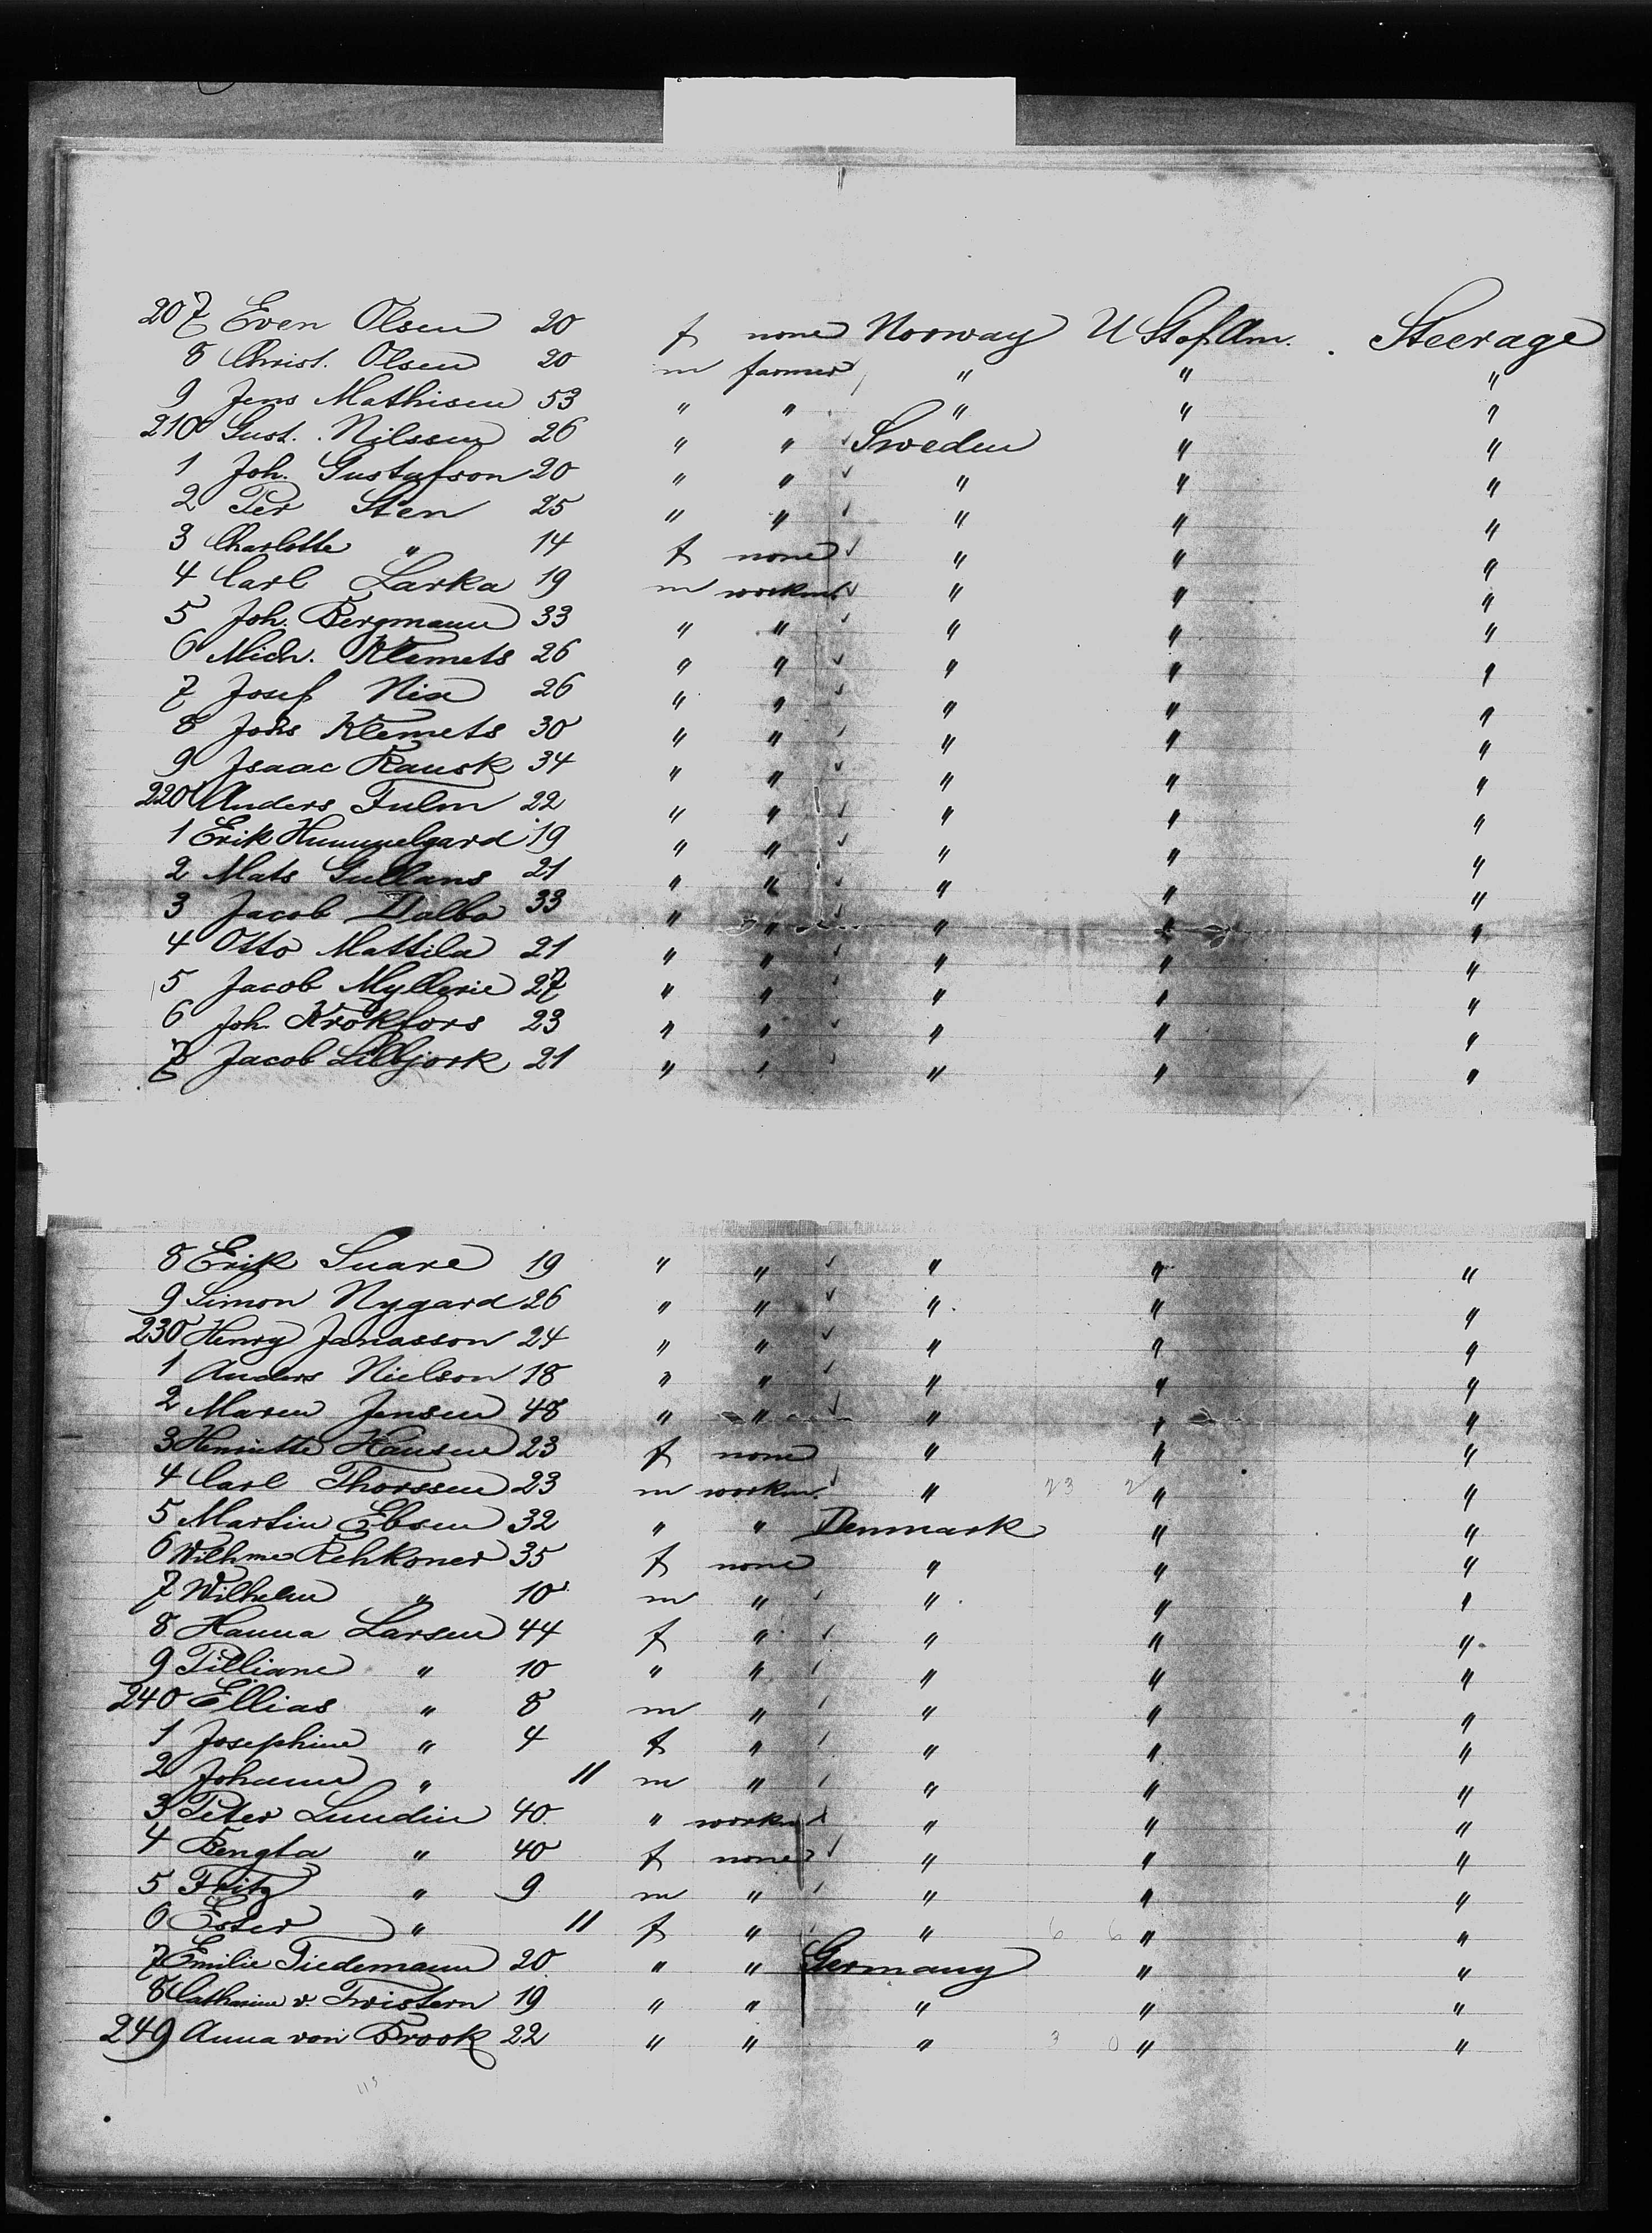 207 Even Olsen 20 f none Norway U St of Am. Steerage
8 Christ. Olsen 20 m farmer " " "
9 Jens Mathisen 53 " " " " "
210 Gust. Nilsson 26 " " Sweden " "
1 Joh. Gustafson 20 " " " " "
2 Per Sten 25 " " " " "
3 Charlotte " 14 f none " " "
4 Carl Larka 19 m workm. " " "
5 Joh. Bergmann 33 " " " " "
6 Mich. Klemets 26 " " " " "
7 Josef Nix 26 " " " " "
8 Johs Klemets 30 " " " " "
9 Isaac Rausk 34 " " " " "
220 Anders Fulm 22 " " " " "
1 Erik Hummelgard 19 " " " " "
2 Mats Gullans 21 " " " " "
3 Jacob Dalbo 33 " " " " "
4 Otto Mattila 21 " " " " "
5 Jacob Myllerie 27 " " " " "
6 Joh. Krokfors 23 " " " " "
7 Jacob Lillbjork 21 " " " " "
8 Erik Suare 19 " " " " "
9 Simon Nygard 26 " " " " "
230 Henry Janasson 24 " " " " "
1 Anders Nielson 18 " " " " "
2 Maren Jensen 48 " " " " "
3 Henriette Hansen 23 f none " " "
4 Carl Thorssen 23 m workm. " 23 2 " "
5 Martin Ebsen 32 " " Denmark " "
6 Wilhme Rehkoner 35 f none " " "
7 Wilhelm " 10 m " " " "
8 Hanna Larsen 44 f " " " "
9 Tilliane " 10 " " " " "
240 Ellias " 8 m " " " "
1 Josephine " 4 f " " " "
2 Johann " 11 m " " " "
3 Peter Lundin 40 " workm " " "
4 Bengta " 40 f none " " "
5 Fritz " 9 m " " " "
6 Ester " 11 f " " 6 6 " "
7 Emilie Tiedemann 20 " " Germany " "
8 Catharine v. Twistern 19 " " " " "
249 Anna von Brook 22 " " " 3 0 " "
113